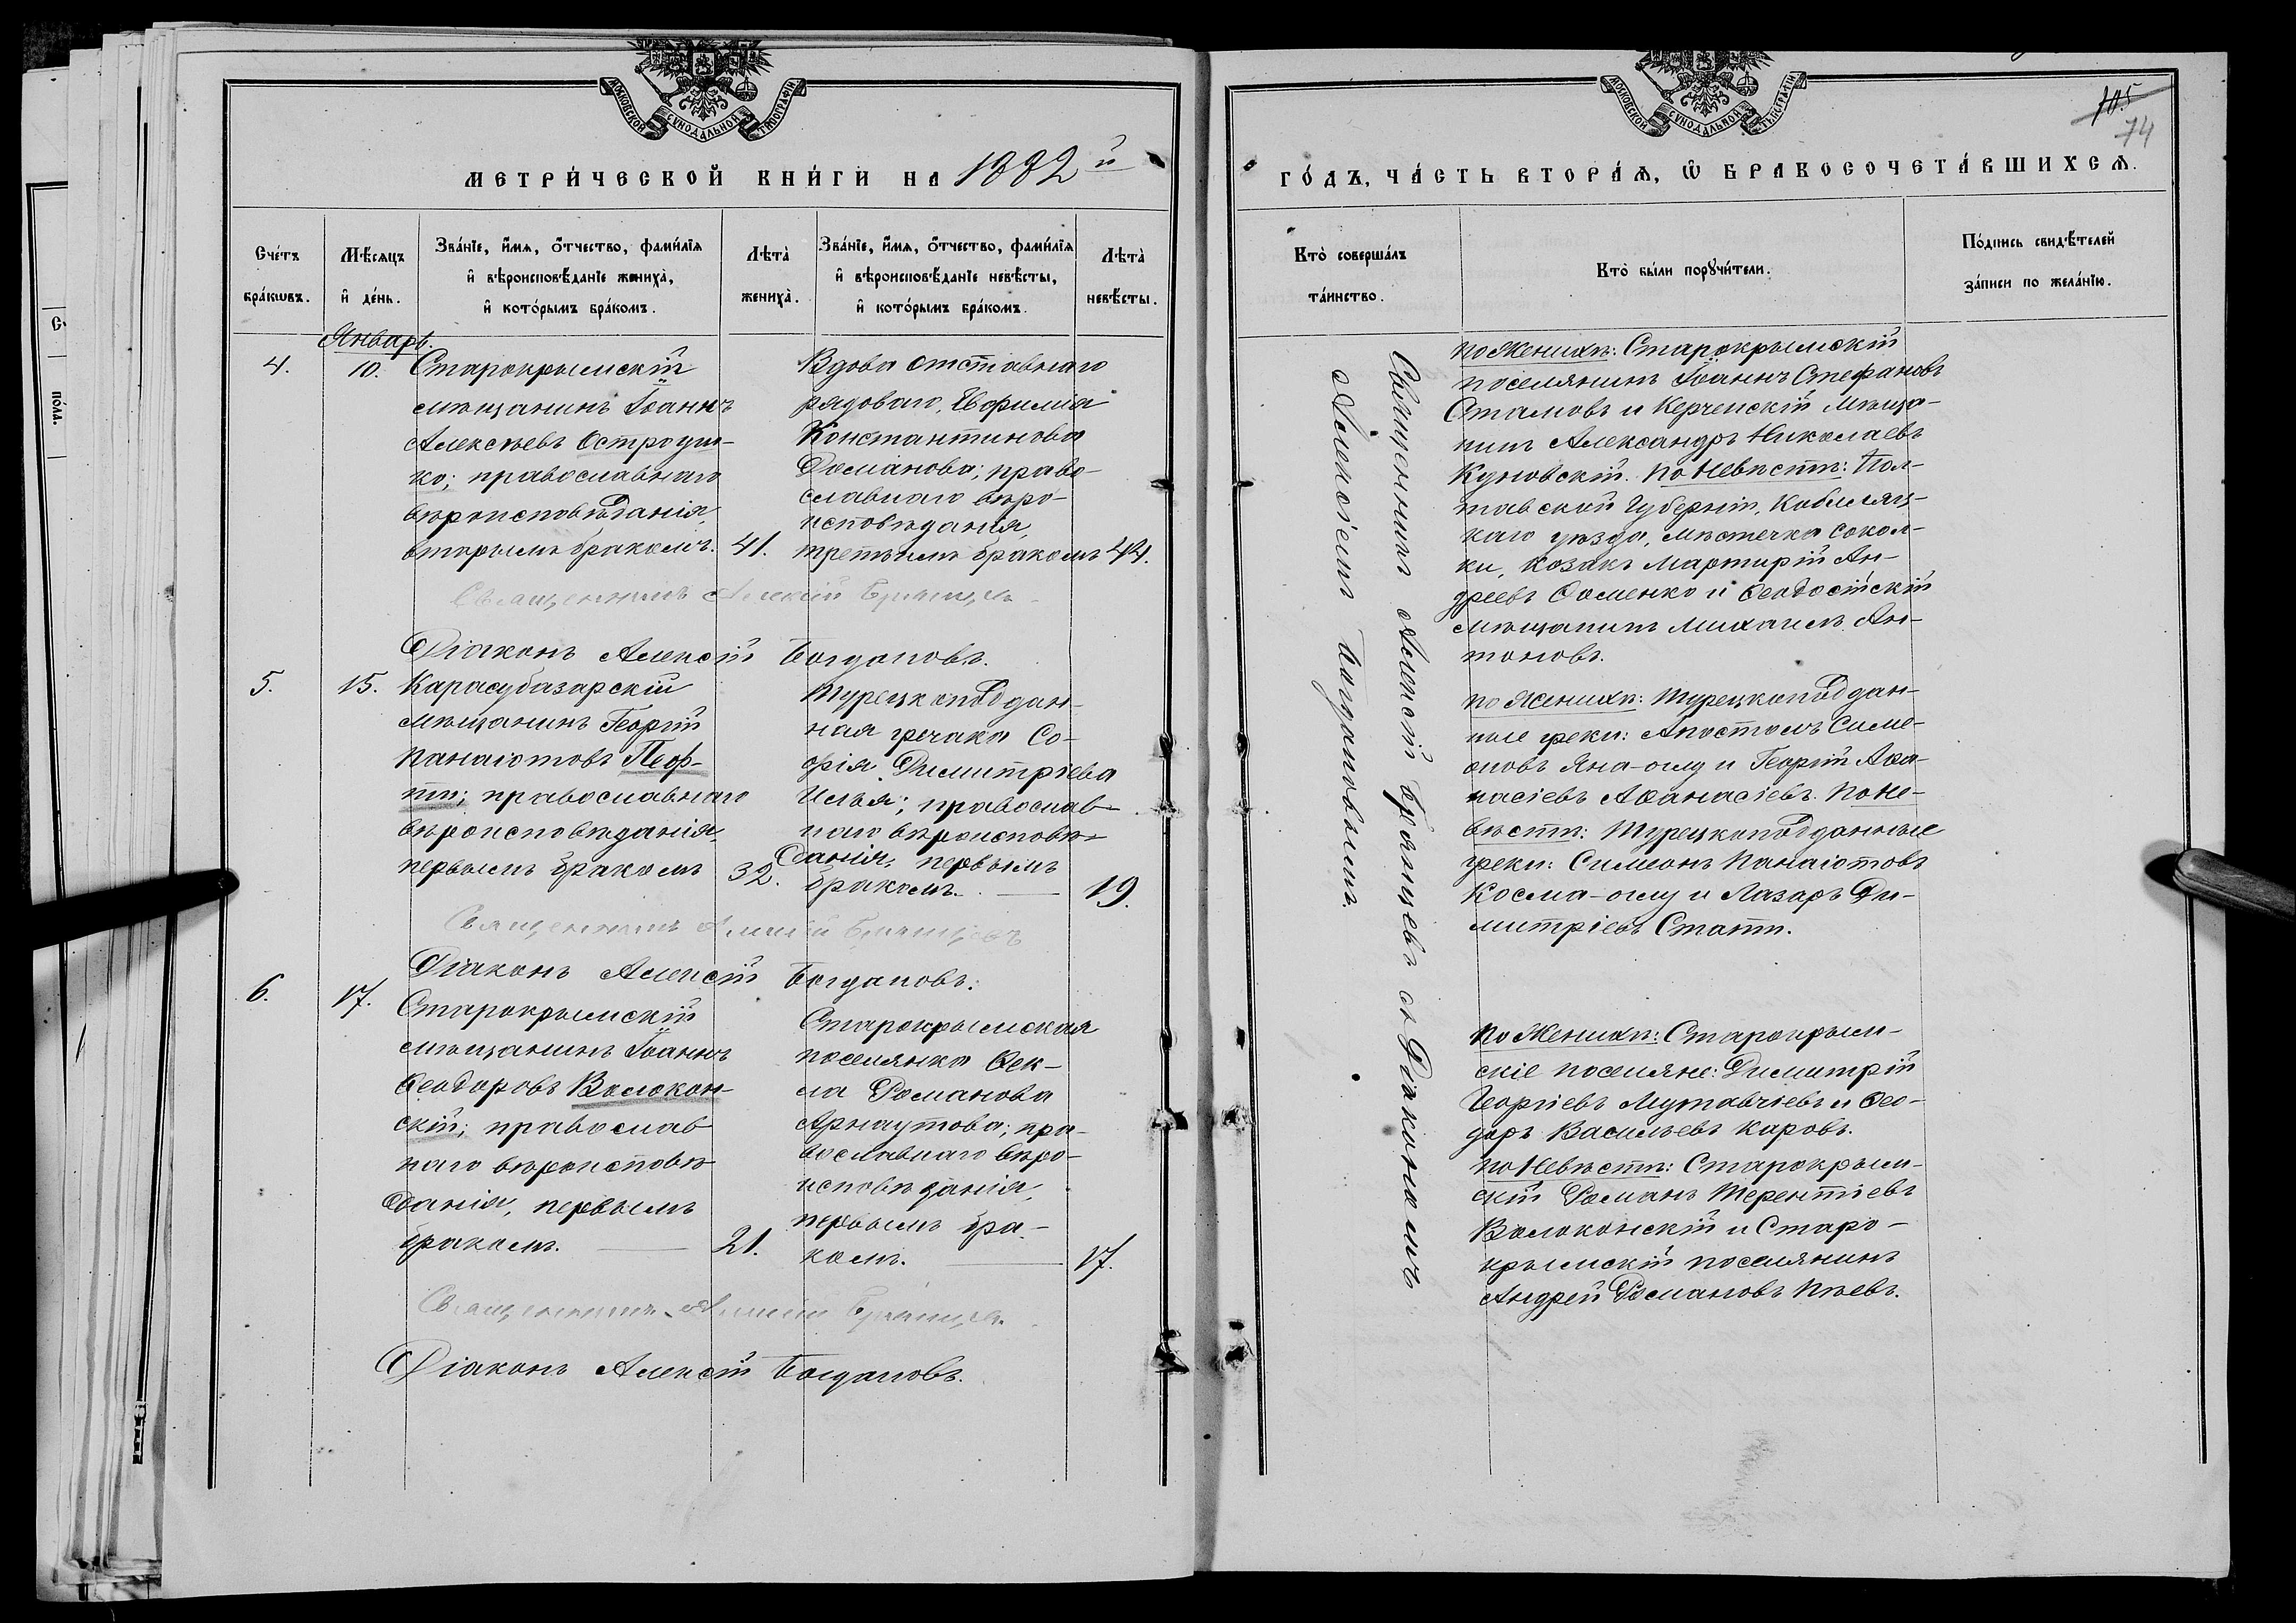 МОСКОВСКОЙ СѴНОДАЛЬНОЙ ТИПОГРАФІИ
МЕТРИ́ЧЕСКОЙ КНИ́ГИ НА 1882 й
Сче́тъ бра́кωвъ.
Мѣ́сяцъ и҆ де́нь.
Зва́нїе, и҆́мѧ, ѻ҆́тчество, фами́лїѧ
и҆ вѣроисповѣ́данїе жениха̀,
и҆ кото́рымъ бра́комъ.
Лѣта̀ жениха̀.
Зва́нїе, и҆́мѧ, ѻ҆́тчество, фами́лїѧ
и҆ вѣроисповѣ́данїе невѣ́сты,
и҆ кото́рымъ бра́комъ.
Лѣта̀ невѣ́сты.
Январь.
4.
10.
Старокрымскій
мѣщанинъ Іоаннъ
Алексѣевъ
ко; православнаго
вѣроисповѣданія,
вторымъ бракомъ.
41.
Вдова отставнаго
рядоваго, Евфимія
Константинова
право-
славнаго вѣро-
исповѣданія,
третьимъ бракомъ
44.
Священникъ Алексій
Діаконъ Алексій Богдановъ.
5.
15.
Карасубазарскій
мѣщанинъ Георгій
Панаіотовъ Пеф-
ти; православнаго
вѣроисповѣданія,
первымъ бракомъ
32.
Турецкоподдан-
ная гречака Со-
фія Димитріева
Илья; православ-
наго вѣроисповѣ-
данія, первымъ
бракомъ.
19.
Священникъ Алексій
Діаконъ Алексій Богдановъ.
6.
17.
Старокрымскій
мѣщанинъ Іоаннъ
Ѳеодоровъ Волокон-
скій; православ
наго вѣроисповѣ-
данія, первымъ
бракомъ.
21.
Старокрымская
поселянка Ѳек-
ла Романова
Арнаутова; пра-
вославнаго вѣро-
исповѣданія,
первымъ бра-
комъ.
17.
Священникъ Алексій
Діаконъ Алексій Богдановъ.
МОСКОВСКОЙ СѴНОДАЛЬНОЙ ТИПОГРАФІИ
105
74
ГО́ДЪ, ЧА́СТЬ ВТОРА́Ѧ, Ѡ҆ БРАКОСОЧЕТА́ВШИХСѦ.
Кто̀ соверша́лъ
та́инство.
Кто̀ бы́ли порꙋчи́тели.
По́дпись свидѣ́телей
за́писи по жела́нїю.
Священникъ Алексій съ Діакономъ
Алексіемъ Богдановымъ.
по Женихѣ: Старокрымскій
поселянинъ Іоаннъ Стефановъ
Стамовъ и Керченскій мѣща-
нинъ Александръ Николаевъ
по Невѣстѣ: Пол-
тавской Губерніи, Кобыляц-
каго уѣзда, мѣстечка Сокол-
ки, козакъ Мартирій Ан-
дреевъ и Ѳеодосійскій
мѣщанинъ Михаилъ Ан-
тоновъ.
по Женихѣ: Турецкоподдан-
ные греки: Апостолъ Симе-
оновъ Яна-оглу и Георгій Аѳа-
насіевъ Аѳанасіевъ. по Не-
вѣстѣ: Турецкоподданные
греки: Симеонъ Панаіотовъ
Косма-оглу и Лазарь Ди-
митріевъ Стати.
по Женихѣ: Старокрым-
скіе поселяне: Димитрій
Георгіевъ Мутавчіевъ и Ѳео-
доръ Васильевъ Каровъ.
по Невѣстѣ: Старокрым-
скій Романъ Терентіевъ
Волоконскій и Старо-
крымскій поселянинъ
Андрей Романовъ